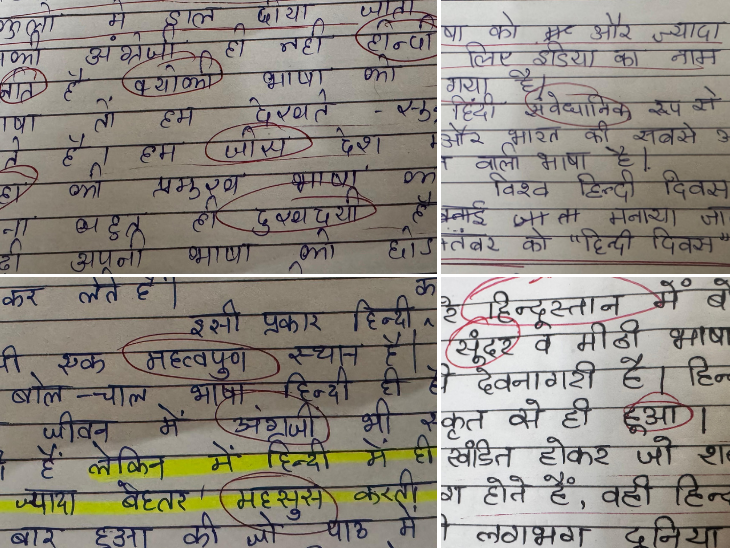 में डाल दीया जाता
अंग्रेजी ही नही हीन्दी
है क्योकी भाषा को
तों हम देखते
है। हम जीस देश
की भाषा
बहुत ही दुखदयी है
अपनी भाषा को छोड
को और ज्यादा
लिए इंडिया का नाम
गया है।
हिंदी संवेध्यानिक रूप से
और भारत की सबसे
वाली भाषा है।
विश्व हिन्दी दिवस
जाता मनाया जा
को "हिन्दी दिवस"
कर लेते है।
इसी प्रकार हिन्दी
एक महत्वपुण स्थान है।
बोल-चाल भाषा हिन्दी ही
जीवन में अंगजी भी
हैं लेकिन में हिन्दी में ही
ज्यादा बेहतर महसुस करती
बार हुआ की जो पाठ में
हिन्दूस्तान में
सूंदर व मीठी भाषा
देवनागरी है।
से ही हूआ।
खंडित होकर जो
होते हैं, वही
लगभग दुनिया